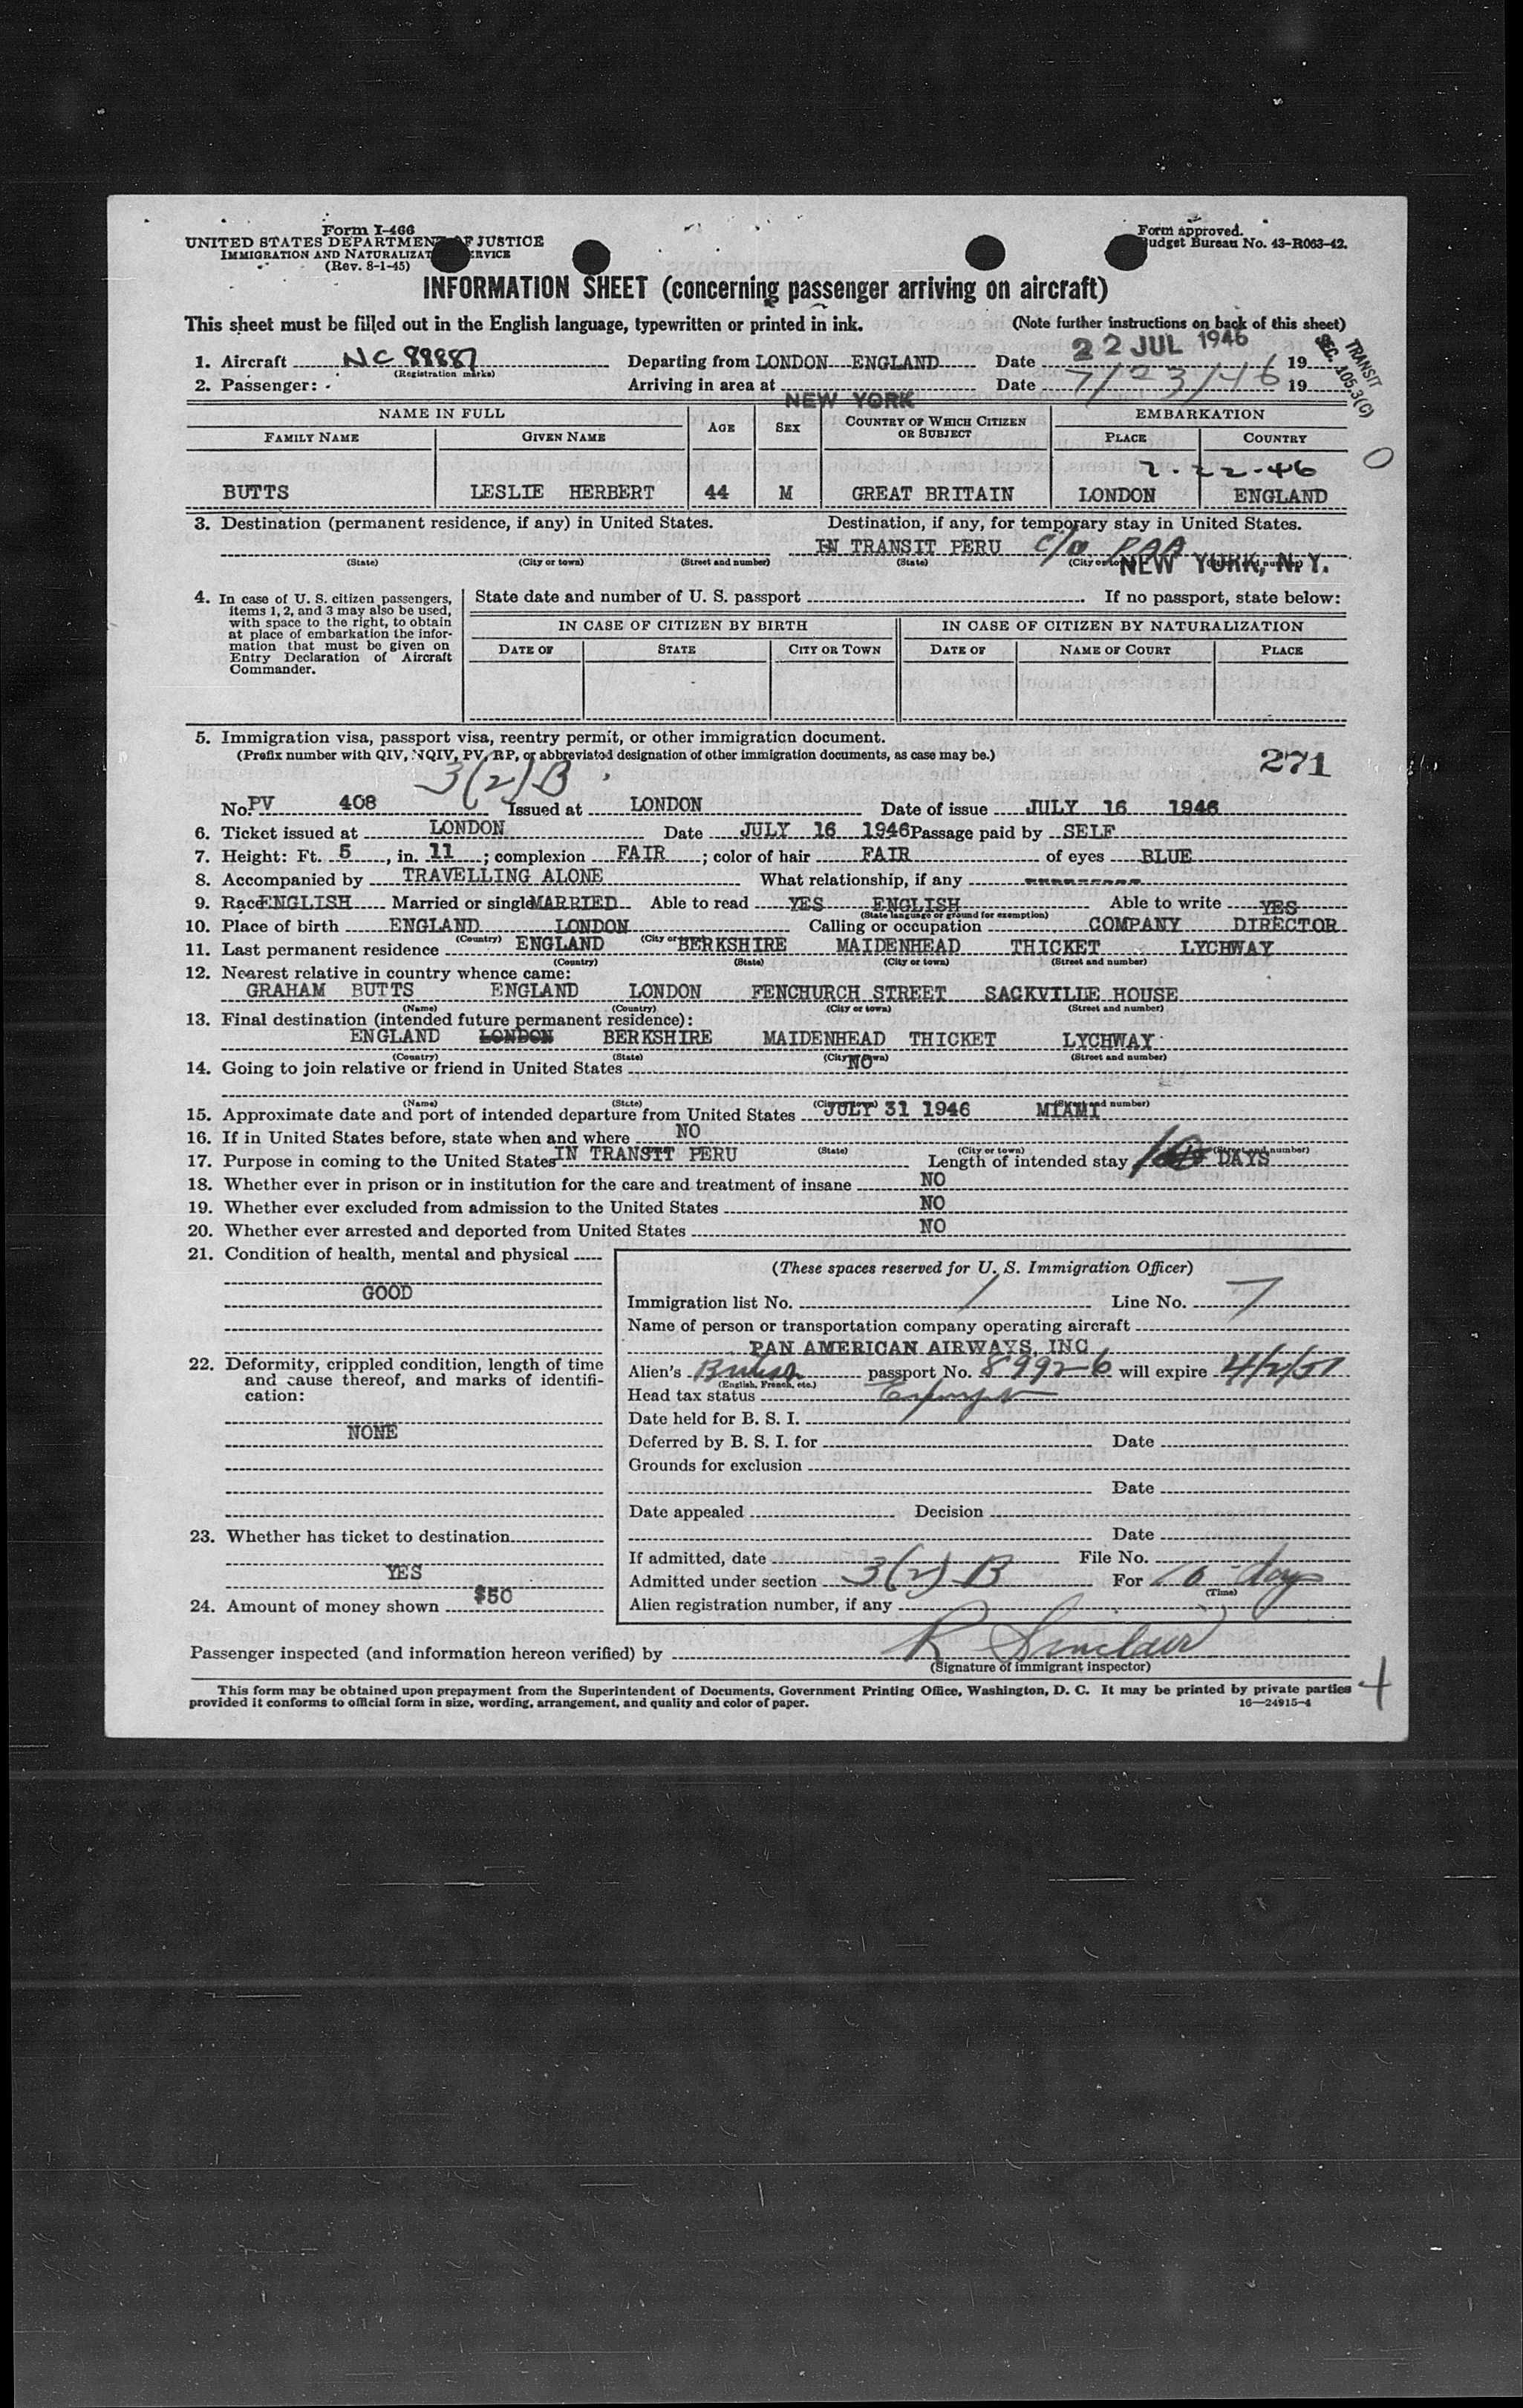 Form I-466
UNITED STATES DEPARTMENT OF JUSTICE
IMMIGRATION AND NATURALIZATION SERVICE
(Rev. 8-1-45)
Form approved.
Budget Bureau No. 43-R063-42.
INFORMATION SHEET (concerning passenger arriving on aircraft)
This sheet must be filled out in the English language, typewritten or printed in ink. (Note further instructions on back of this sheet)
1. Aircraft NC 88887 Departing from LONDON ENGLAND Date 22 JUL 1946 19
(Registration marks)
TRANSIT
SEC. 105.3(C)
2. Passenger: Arriving in area at NEW YORK Date 7/23/46 19
NAME IN FULL AGE SEX COUNTRY OF WHICH CITIZEN OR SUBJECT EMBARKATION
FAMILY NAME GIVEN NAME PLACE COUNTRY
7-22-46
BUTTS LESLIE HERBERT 44 M GREAT BRITAIN LONDON ENGLAND
3. Destination (permanent residence, if any) in United States. Destination, if any, for temporary stay in United States.
IN TRANSIT PERU c/o PAA
NEW YORK, N.Y.
(State) (City or town) (Street and number) (State) (City or town) (Street and number)
4. In case of U. S. citizen passengers, items 1, 2, and 3 may also be used, with space to the right, to obtain at place of embarkation the information that must be given on Entry Declaration of Aircraft Commander.
State date and number of U. S. passport If no passport, state below:
IN CASE OF CITIZEN BY BIRTH IN CASE OF CITIZEN BY NATURALIZATION
DATE OF STATE CITY OR TOWN DATE OF NAME OF COURT PLACE
5. Immigration visa, passport visa, reentry permit, or other immigration document.
(Prefix number with QIV, NQIV, PV, RP, or abbreviated designation of other immigration documents, as case may be.)
271
3(2)B
No. PV 408 Issued at LONDON Date of issue JULY 16 1946
6. Ticket issued at LONDON Date JULY 16 1946 Passage paid by SELF
7. Height: Ft. 5, in. 11; complexion FAIR; color of hair FAIR of eyes BLUE
8. Accompanied by TRAVELLING ALONE What relationship, if any
9. Race ENGLISH Married or single MARRIED Able to read YES ENGLISH Able to write YES
(State language or ground for exemption)
10. Place of birth ENGLAND LONDON Calling or occupation COMPANY DIRECTOR
(Country) (City or town)
11. Last permanent residence ENGLAND BERKSHIRE MAIDENHEAD THICKET LYCHWAY
(Country) (State) (City or town) (Street and number)
12. Nearest relative in country whence came:
GRAHAM BUTTS ENGLAND LONDON FENCHURCH STREET SACKVILLE HOUSE
(Name) (Country) (City or town) (Street and number)
13. Final destination (intended future permanent residence):
ENGLAND LONDON BERKSHIRE MAIDENHEAD THICKET LYCHWAY
(Country) (State) (City or town) (Street and number)
14. Going to join relative or friend in United States NO
(Name) (State) (City or town) (Street and number)
15. Approximate date and port of intended departure from United States JULY 31 1946 MIAMI
16. If in United States before, state when and where NO
(State) (City or town) (Street and number)
17. Purpose in coming to the United States IN TRANSIT PERU Length of intended stay 10 DAYS
18. Whether ever in prison or in institution for the care and treatment of insane NO
19. Whether ever excluded from admission to the United States NO
20. Whether ever arrested and deported from United States NO
21. Condition of health, mental and physical
GOOD
22. Deformity, crippled condition, length of time and cause thereof, and marks of identification:
NONE
23. Whether has ticket to destination
YES
24. Amount of money shown $50
(These spaces reserved for U. S. Immigration Officer)
Immigration list No. 1 Line No. 7
Name of person or transportation company operating aircraft
PAN AMERICAN AIRWAYS, INC
Alien's British passport No. 89926 will expire 4/2/51
(English, French, etc.)
Head tax status Exempt
Date held for B. S. I.
Deferred by B. S. I. for Date
Grounds for exclusion
Date
Date appealed Decision
Date
If admitted, date File No.
Admitted under section 3(2) B For 10 days
(Time)
Alien registration number, if any
Passenger inspected (and information hereon verified) by R Sinclair
(Signature of immigrant inspector)
This form may be obtained upon prepayment from the Superintendent of Documents, Government Printing Office, Washington, D. C. It may be printed by private parties
provided it conforms to official form in size, wording, arrangement, and quality and color of paper. 16—24915-4